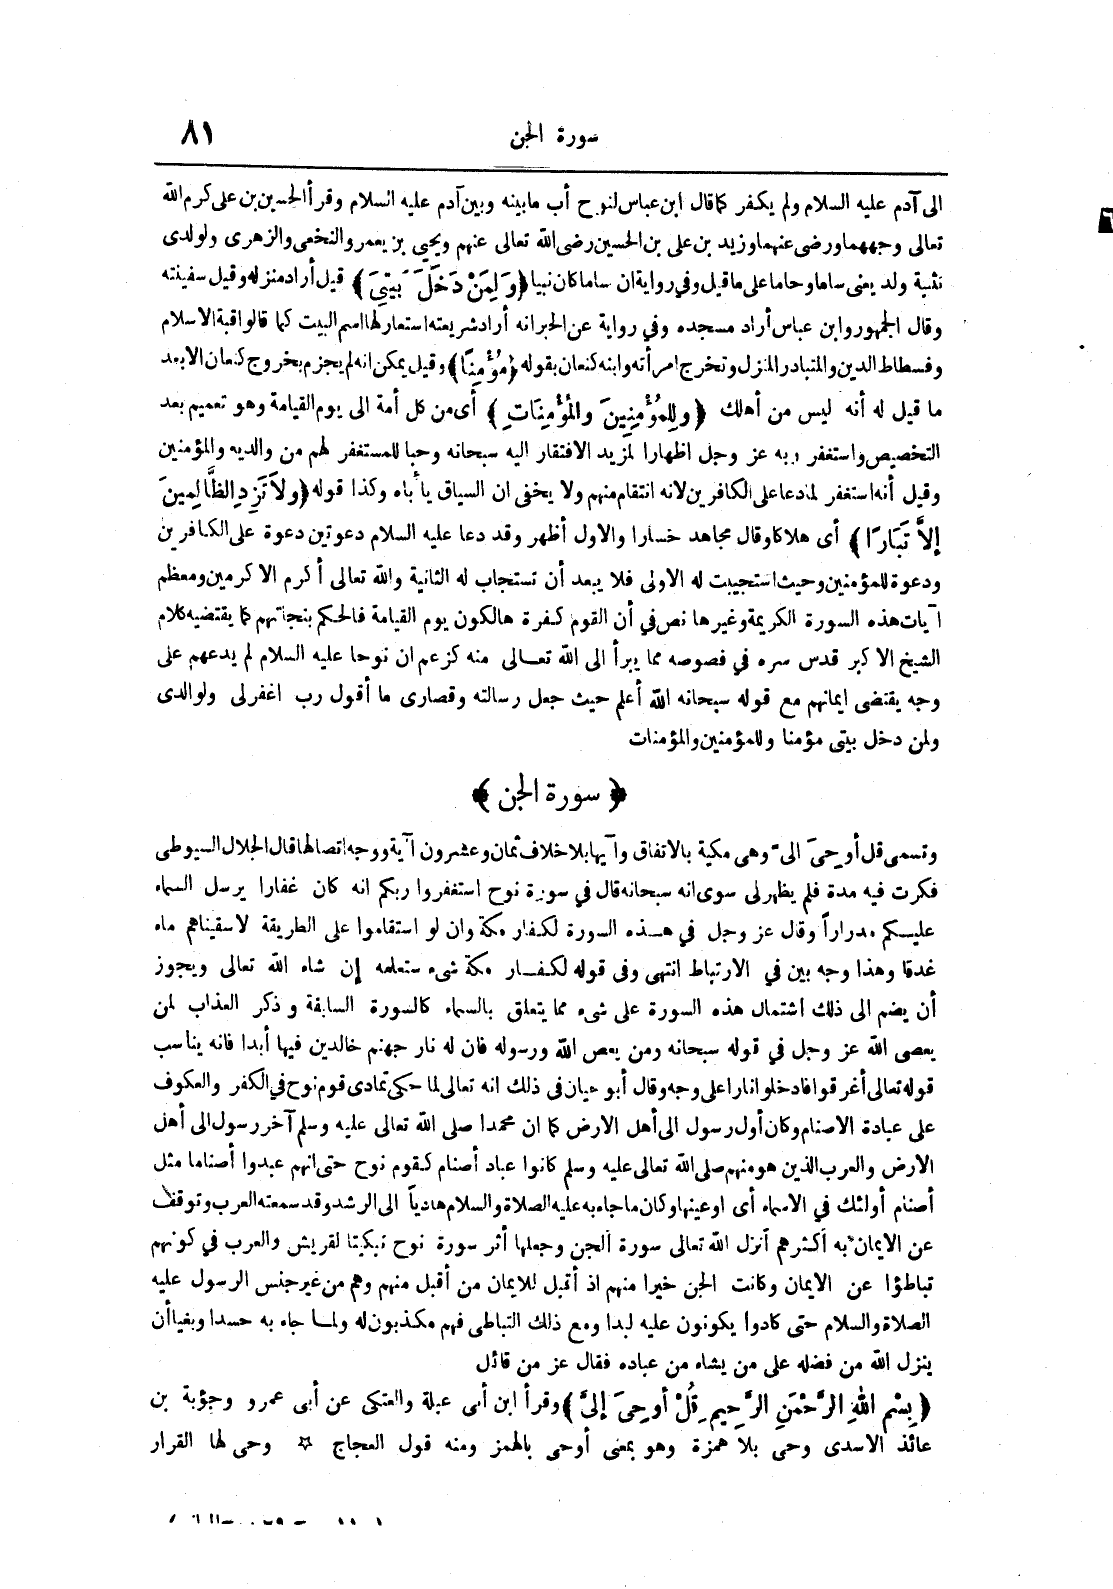 سورة الجن ٨١
الى آدم عليه السلام ولم يكفر كما قال ابن عباس لنوح أب ما بينه وبين آدم عليه السلام وقرأ الحسين بن على كرم الله
تعالى وجههما ورضى عنهما وزيد بن على بن الحسين رضى الله تعالى عنهم ويحيى بن يعمر والنخعى والزهرى ولولدى
تثنية ولد يعنى ساما وحاما على ما قيل وفى رواية ان ساما كان نبيا ﴿وَلِمَنْ دَخَلَ بَيْتِيَ﴾ قيل أراد منزله وقيل سفينته
وقال الجمهور وابن عباس أراد مسجده وفى رواية عن الحبر انه أراد شريعته استعار لها اسم البيت كما قالوا قبة الاسلام
وفسطاط الدين والمتبادر المنزل وتخرج امرأته وابنه كنعان بقوله ﴿مُؤْمِنًا﴾ وقيل يمكن انه لم يجزم بخروج كنعان الا بعد
ما قيل له أنه ليس من أهلك ﴿وَلِلْمُؤْمِنِينَ وَالْمُؤْمِنَاتِ﴾ أى من كل أمة الى يوم القيامة وهو تعميم بعد
التخصيص واستغفر ربه عز وجل اظهارا لمزيد الافتقار اليه سبحانه وحبا للمستغفر لهم من والديه والمؤمنين
وقيل أنه استغفر لما دعا على الكافرين لانه انتقام منهم ولا يخفى ان السياق يأباه وكذا قوله ﴿ولاَ تَزِدِ الظَّالِمِينَ
إلاَّ تَبَارًا﴾ أى هلاكا وقال مجاهد خسارا والاول أظهر وقد دعا عليه السلام دعوتين دعوة على الكافرين
ودعوة للمؤمنين وحيث استجيبت له الاولى فلا يبعد أن تستجاب له الثانية والله تعالى أكرم الاكرمين ومعظم
آيات هذه السورة الكريمة وغيرها نص فى أن القوم كفرة هالكون يوم القيامة فالحكم بنجاتهم كما يقتضيه كلام
الشيخ الاكبر قدس سره فى فصوصه مما يبرأ الى الله تعالى منه كزعم ان نوحا عليه السلام لم يدعهم على
وجه يقتضى ايمانهم مع قوله سبحانه الله أعلم حيث جعل رسالته وقصارى ما أقول رب اغفر لى ولوالدى
ولمن دخل بيتى مؤمنا وللمؤمنين والمؤمنات
﴿ سورة الجن ﴾
وتسمى قل أوحى الى وهى مكية بالاتفاق وآيها بلا خلاف ثمان وعشرون آية ووجه اتصالها قال الجلال السيوطى
فكرت فيه مدة فلم يظهر لى سوى انه سبحانه قال في سورة نوح استغفروا ربكم انه كان غفارا يرسل السماء
عليكم مدراراً وقال عز وجل فى هذه السورة لكفار مكة وان لو استقاموا على الطريقة لاسقيناهم ماء
غدقا وهذا وجه بين في الارتباط انتهى وفى قوله لكفار مكة شىء ستعلمه إن شاء الله تعالى ويجوز
أن يضم الى ذلك اشتمال هذه السورة على شىء مما يتعلق بالسماء كالسورة السابقة وذكر العذاب لمن
يعصى الله عز وجل في قوله سبحانه ومن يعص الله ورسوله فان له نار جهنم خالدين فيها أبدا فانه يناسب
قوله تعالى أغرقوا فادخلوا نارا على وجه وقال أبو حيان فى ذلك انه تعالى لما حكى تمادى قوم نوح في الكفر والعكوف
على عبادة الاصنام وكان أول رسول الى أهل الارض كما ان محمدا صلى الله تعالى عليه وسلم آخر رسول الى أهل
الارض والعرب الذين هو منهم صلى الله تعالى عليه وسلم كانوا عباد أصنام كقوم نوح حتى انهم عبدوا أصناما مثل
أصنام أولئك في الاسماء أى او عينها وكان ما جاء به عليه الصلاة والسلام هادياً الى الرشد وقد سمعته العرب وتوقف
عن الايمان به أكثرهم أنزل الله تعالى سورة الجن وجعلها أثر سورة نوح تبكيتا لقريش والعرب في كونهم
تباطؤا عن الايمان وكانت الجن خيرا منهم اذ أقبل للايمان من أقبل منهم وهم من غير جنس الرسول عليه
الصلاة والسلام حتى كادوا يكونون عليه لبدا ومع ذلك التباطى فهم مكذبون له ولما جاء به حسدا وبغيا أن
ينزل الله من فضله على من يشاء من عباده فقال عز من قائل
﴿بِسْمِ اللهِ الرَّحْمَنِ الرَّحِيمِ قُلْ أوحِيَ إليَّ﴾ وقرأ ابن أبى عبلة والعتكى عن أبى عمرو وجؤية بن
عائذ الاسدى وحى بلا همزة وهو بمعنى أوحى بالهمز ومنه قول العجاج ☆ وحى لها القرار